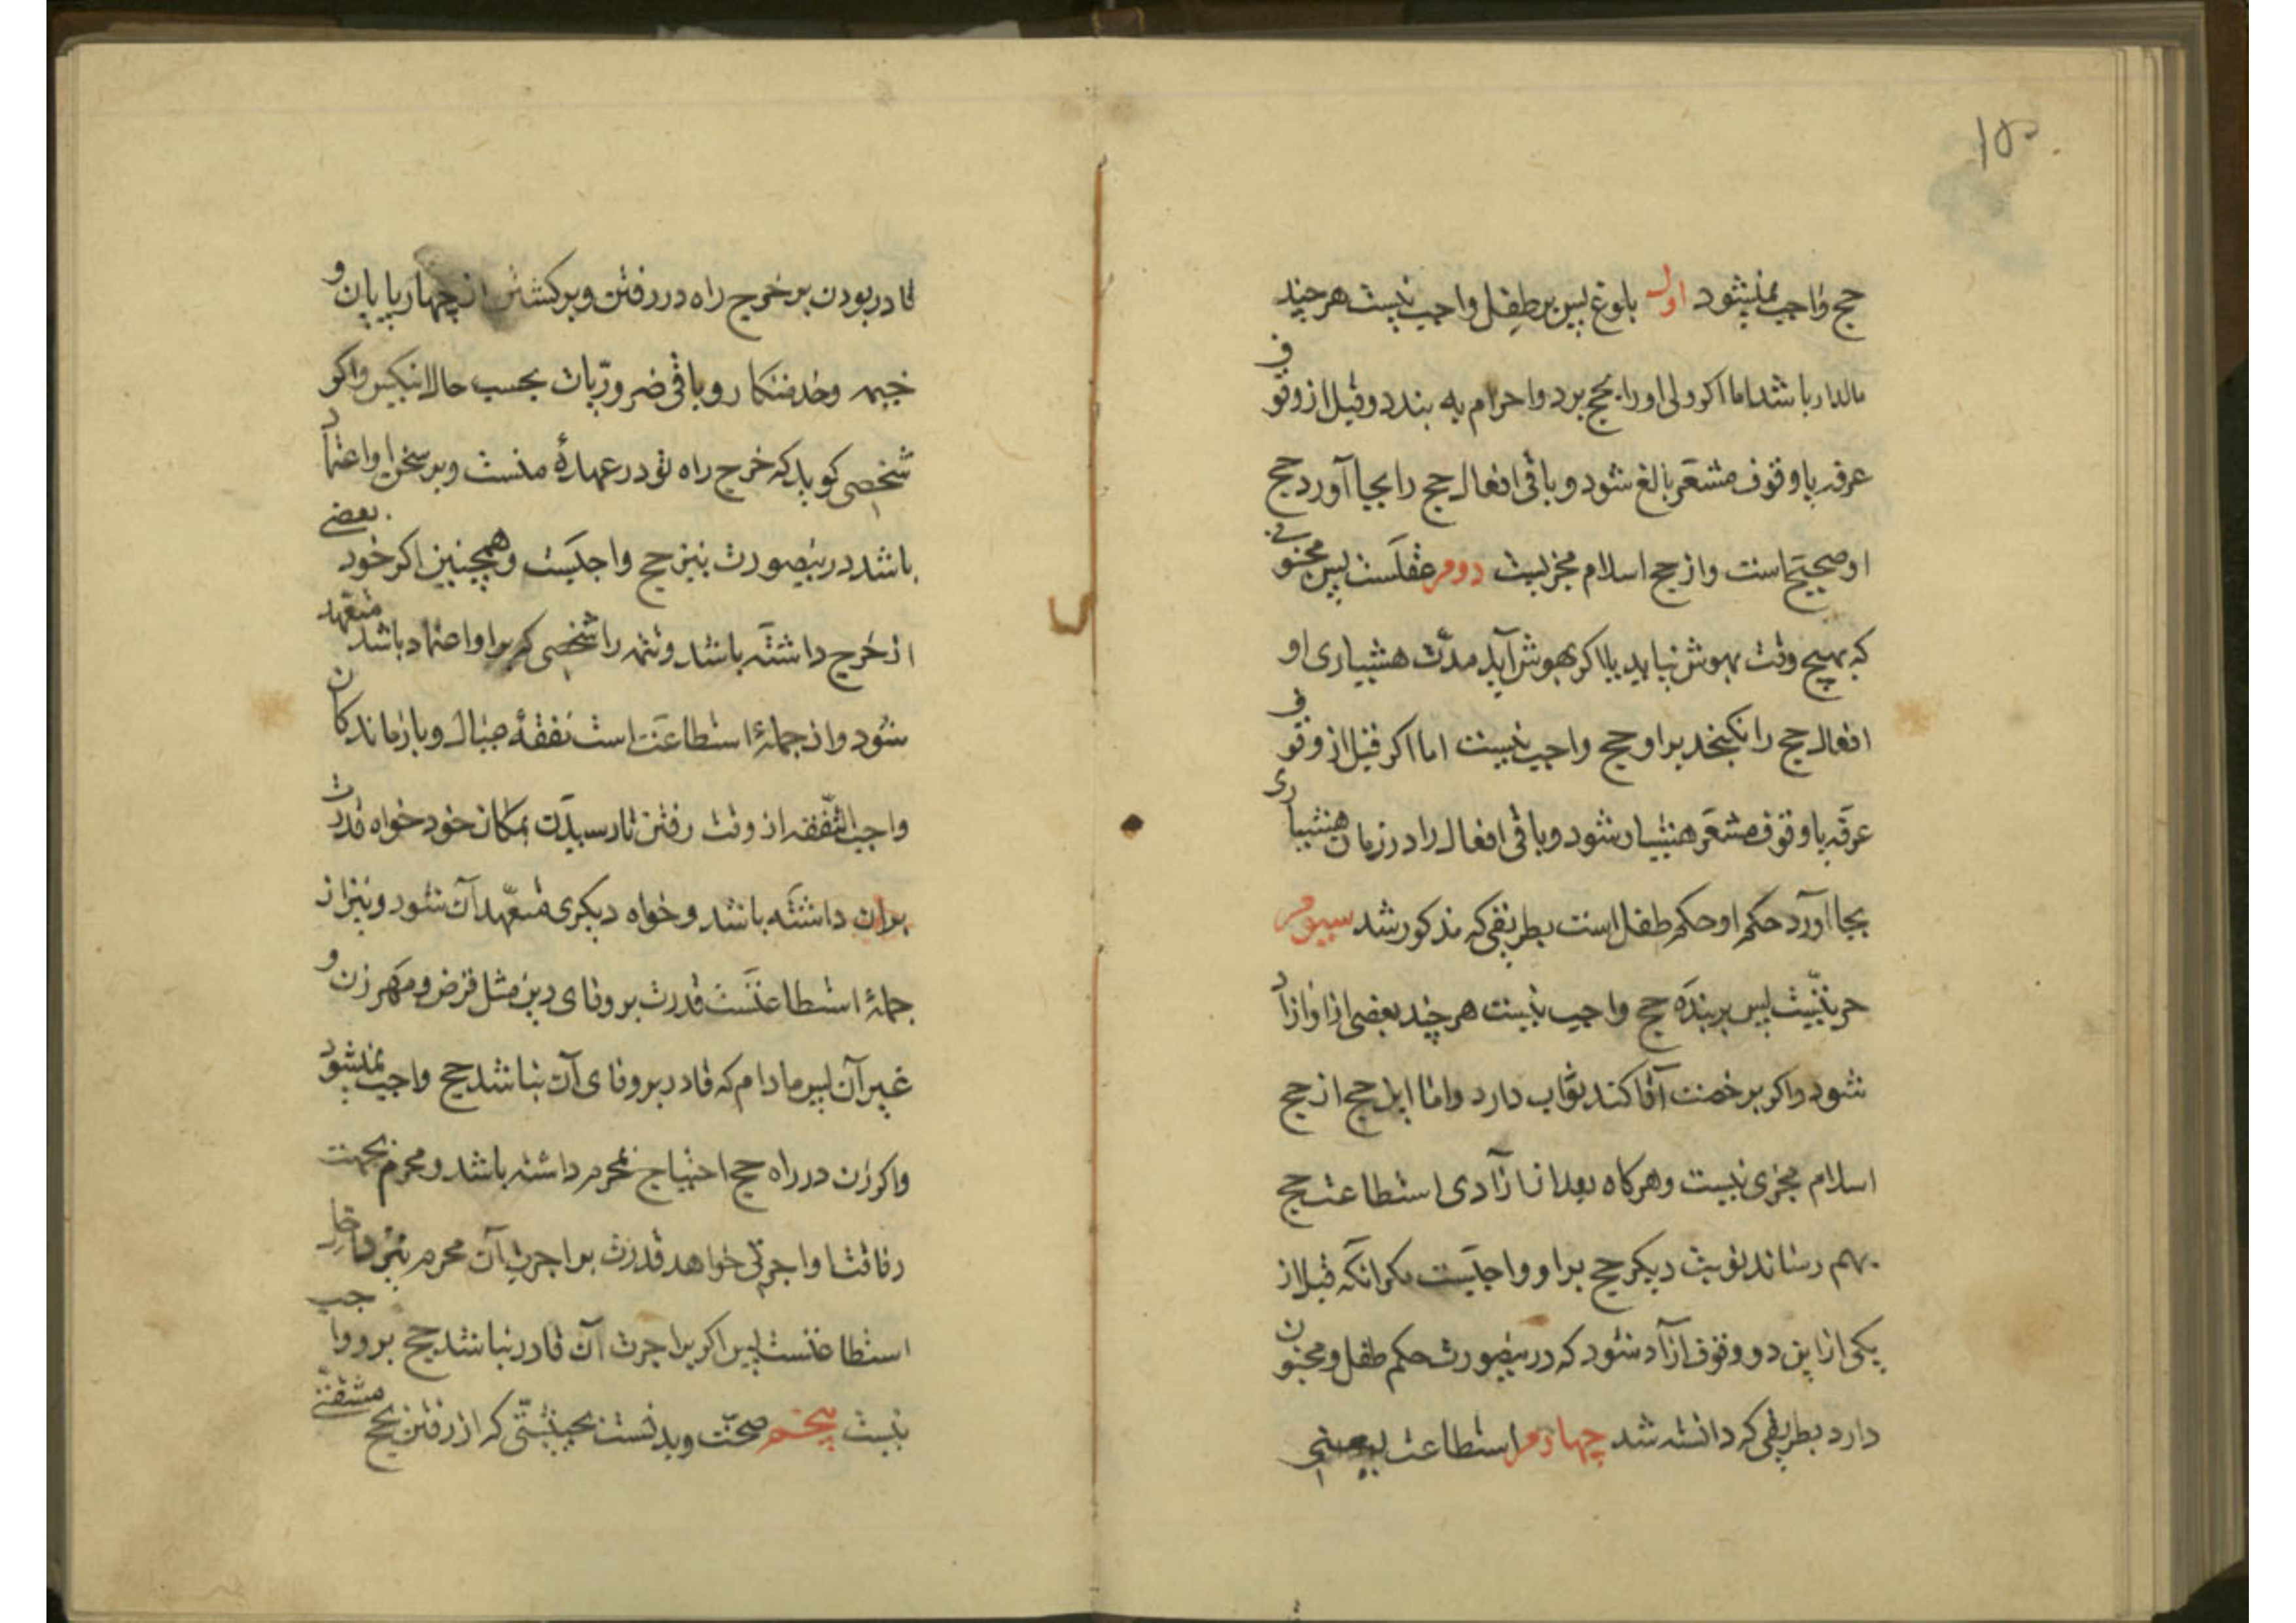 ۱۵۰
حج واجب نمیشود اول بلوغ پس بر طفل واجب نیست هر چند
مالدار باشد اما اکر ولی او را بحج برد و احرام به بندد و قبل از وقوف
عرفه یا وقوف مشعر بالغ شود و باقی افعال حج را بجا آورد حج
او صحیح است و از حج اسلام مجزیست دوم عقلست پس مجنونی
که بهیچ وقت بهوش نیاید یا اکر بهوش آید مدت هشیاری او
افعال حج را نکنجد بر او حج واجب نیست اما اکر قبل از وقوف
عرفه یا وقوف مشعر هشیار شود و باقی افعال را در زمان هشیاری
بجا آورد حکم او حکم طفل است بطریقی که مذکور شد سیوم
حریّت پس بر بنده حج واجب نیست هر چند بعضی از او ازاد
شود و اکر برخصت آقا کند ثواب دارد و اما این حج از حج
اسلام مجزی نیست و هرکاه بعد از آزادی استطاعت حج
بهم رساند نوبت دیکر حج بر او واجبست مکر انکه قبل از
یکی از این دو وقوف ازاد شود که در ینصورت حکم طفل و مجنون
دارد بطریقی که دانسته شد چهارم استطاعت یعنی
قادر بودن بر خرج راه در رفتن و برکشتن از چهارپایان و
خیمه و خدمتکار و باقی ضروریّات بحسب حال انکس و اکر
شخصی کوید که خرج راه تو در عهدهٔ منست و بر سخن او اعتماد
باشد در ینصورت نیز حج واجبست و همچنین اکر خود بعضی
از خرج داشته باشد و تتمه را شخصی که بر او اعتماد باشد متعهد
شود و از جملهٔ استطاعت است نفقهٔ عیال و بازماندکان
واجب النّفقه از وقت رفتن تا رسیدن بمکان خود خواه قدرت
بران داشته باشد و خواه دیکری متعهد آن شود و نیز از
جملهٔ استطاعتست قدرت بر وفای دین مثل قرض و مهر زن و
غیر آن پس مادام که قادر بر وفای آن نباشد حج واجب نمیشود
و اکر زن در راه حج احتیاج بمحرم داشته باشد و محرم بجهت
رفاقت اواجرتی خواهد قدرت بر اجرت آن محرم نیز داخل
استطاعتست پس اکر بر اجرت آن قادر نباشد حج بر و واجب
نیست پنجم صحّت و بدنست بحیثیّتی که از رفتن بحج مشقتی